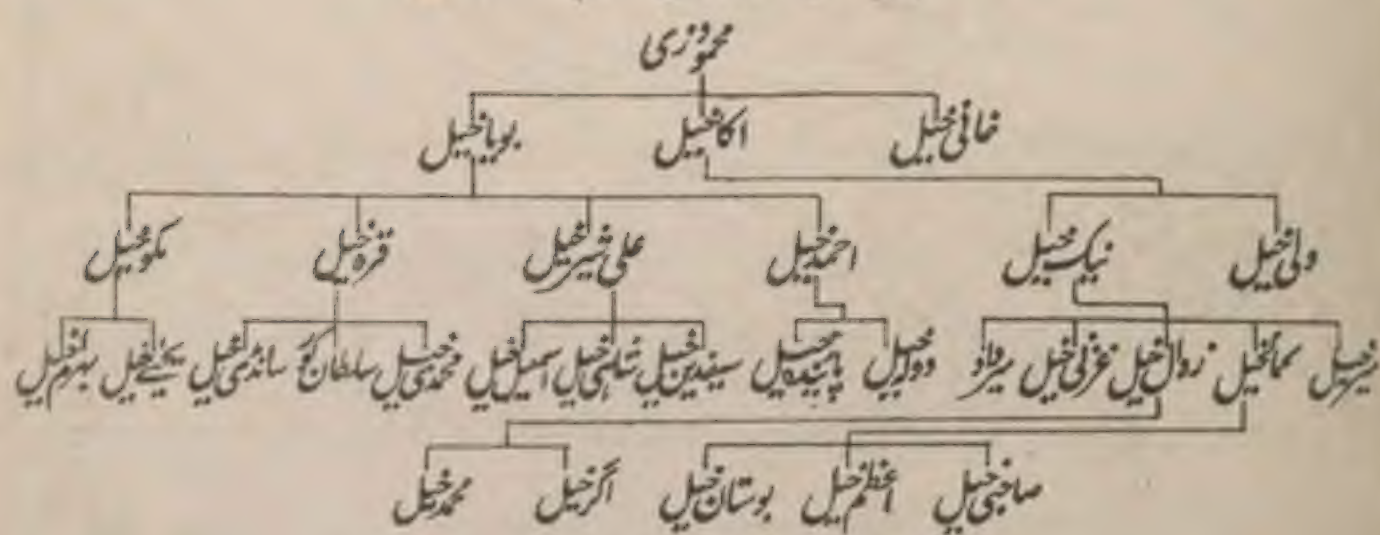 محمودزی
خانی خیل اکاخیل بوباخیل
ولی خیل نیک خیل احمدخیل علی شیرخیل قره خیل مکوخیل
میرخیل سماخیل زوال خیل غزنی خیل میرداد دولخیل پاینده خیل سیندین خیل شاہی خیل اسمعیل خیل محمدی خیل سلطان کو ساندی خیل یحیی خیل بہرام خیل
صاحبی خیل اعظم خیل بوستان خیل اگرخیل محمدخیل